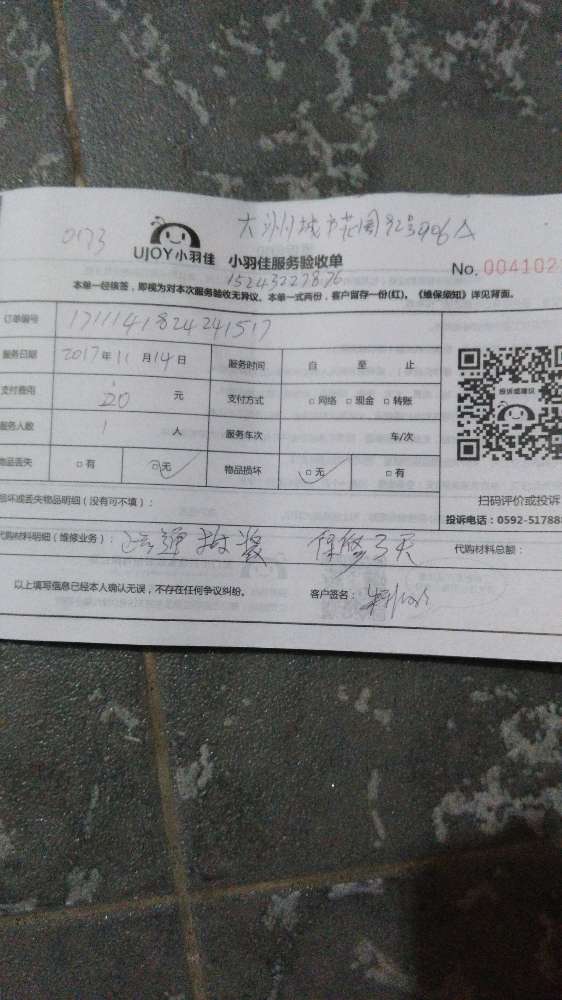 0173
大洲城市花园92号906A
UJOY小羽佳 小羽佳服务验收单
No.004102
15243227876
本单一经核签，即视为对本次服务验收无异议。本单一式两份，客户留存一份(红)，《维保须知》详见背面。
订单编号 1711141824241517
服务日期 2017年11月14日 服务时间 自 至 止
支付费用 20 元 支付方式 □网络 □现金 □转账
投诉或建议
服务人数 1 人 服务车次 车/次
物品丢失 □有 □无 物品损坏 □无 □有
损坏或丢失物品明细（没有可不填）：
扫码评价或投诉
投诉电话：0592-51788
代购材料明细（维修业务）： 疏通拆装 保修3天 代购材料总额：
以上填写信息已经本人确认无误，不存在任何争议纠纷。 客户签名：